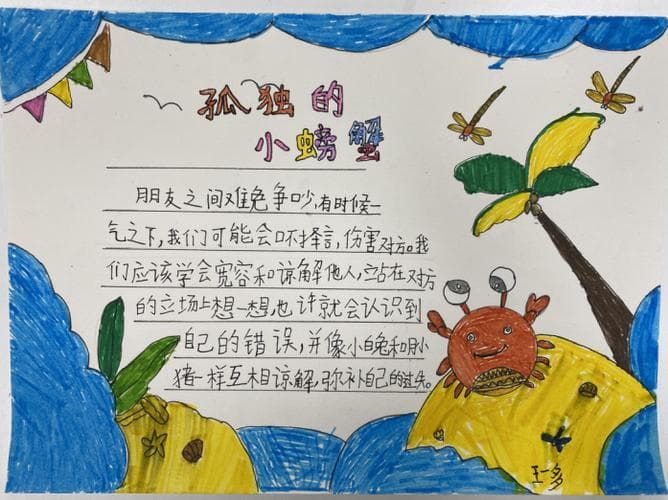 孤独的
小螃蟹
朋友之间难免争吵,有时候一
气之下,我们可能会口不择言,伤害对方。我
们应该学会宽容和谅解他人,站在对方
的立场上想一想,也许就会认识到
自己的错误,并像小白兔和小
猪一样互相谅解,弥补自己的过失。
王一多